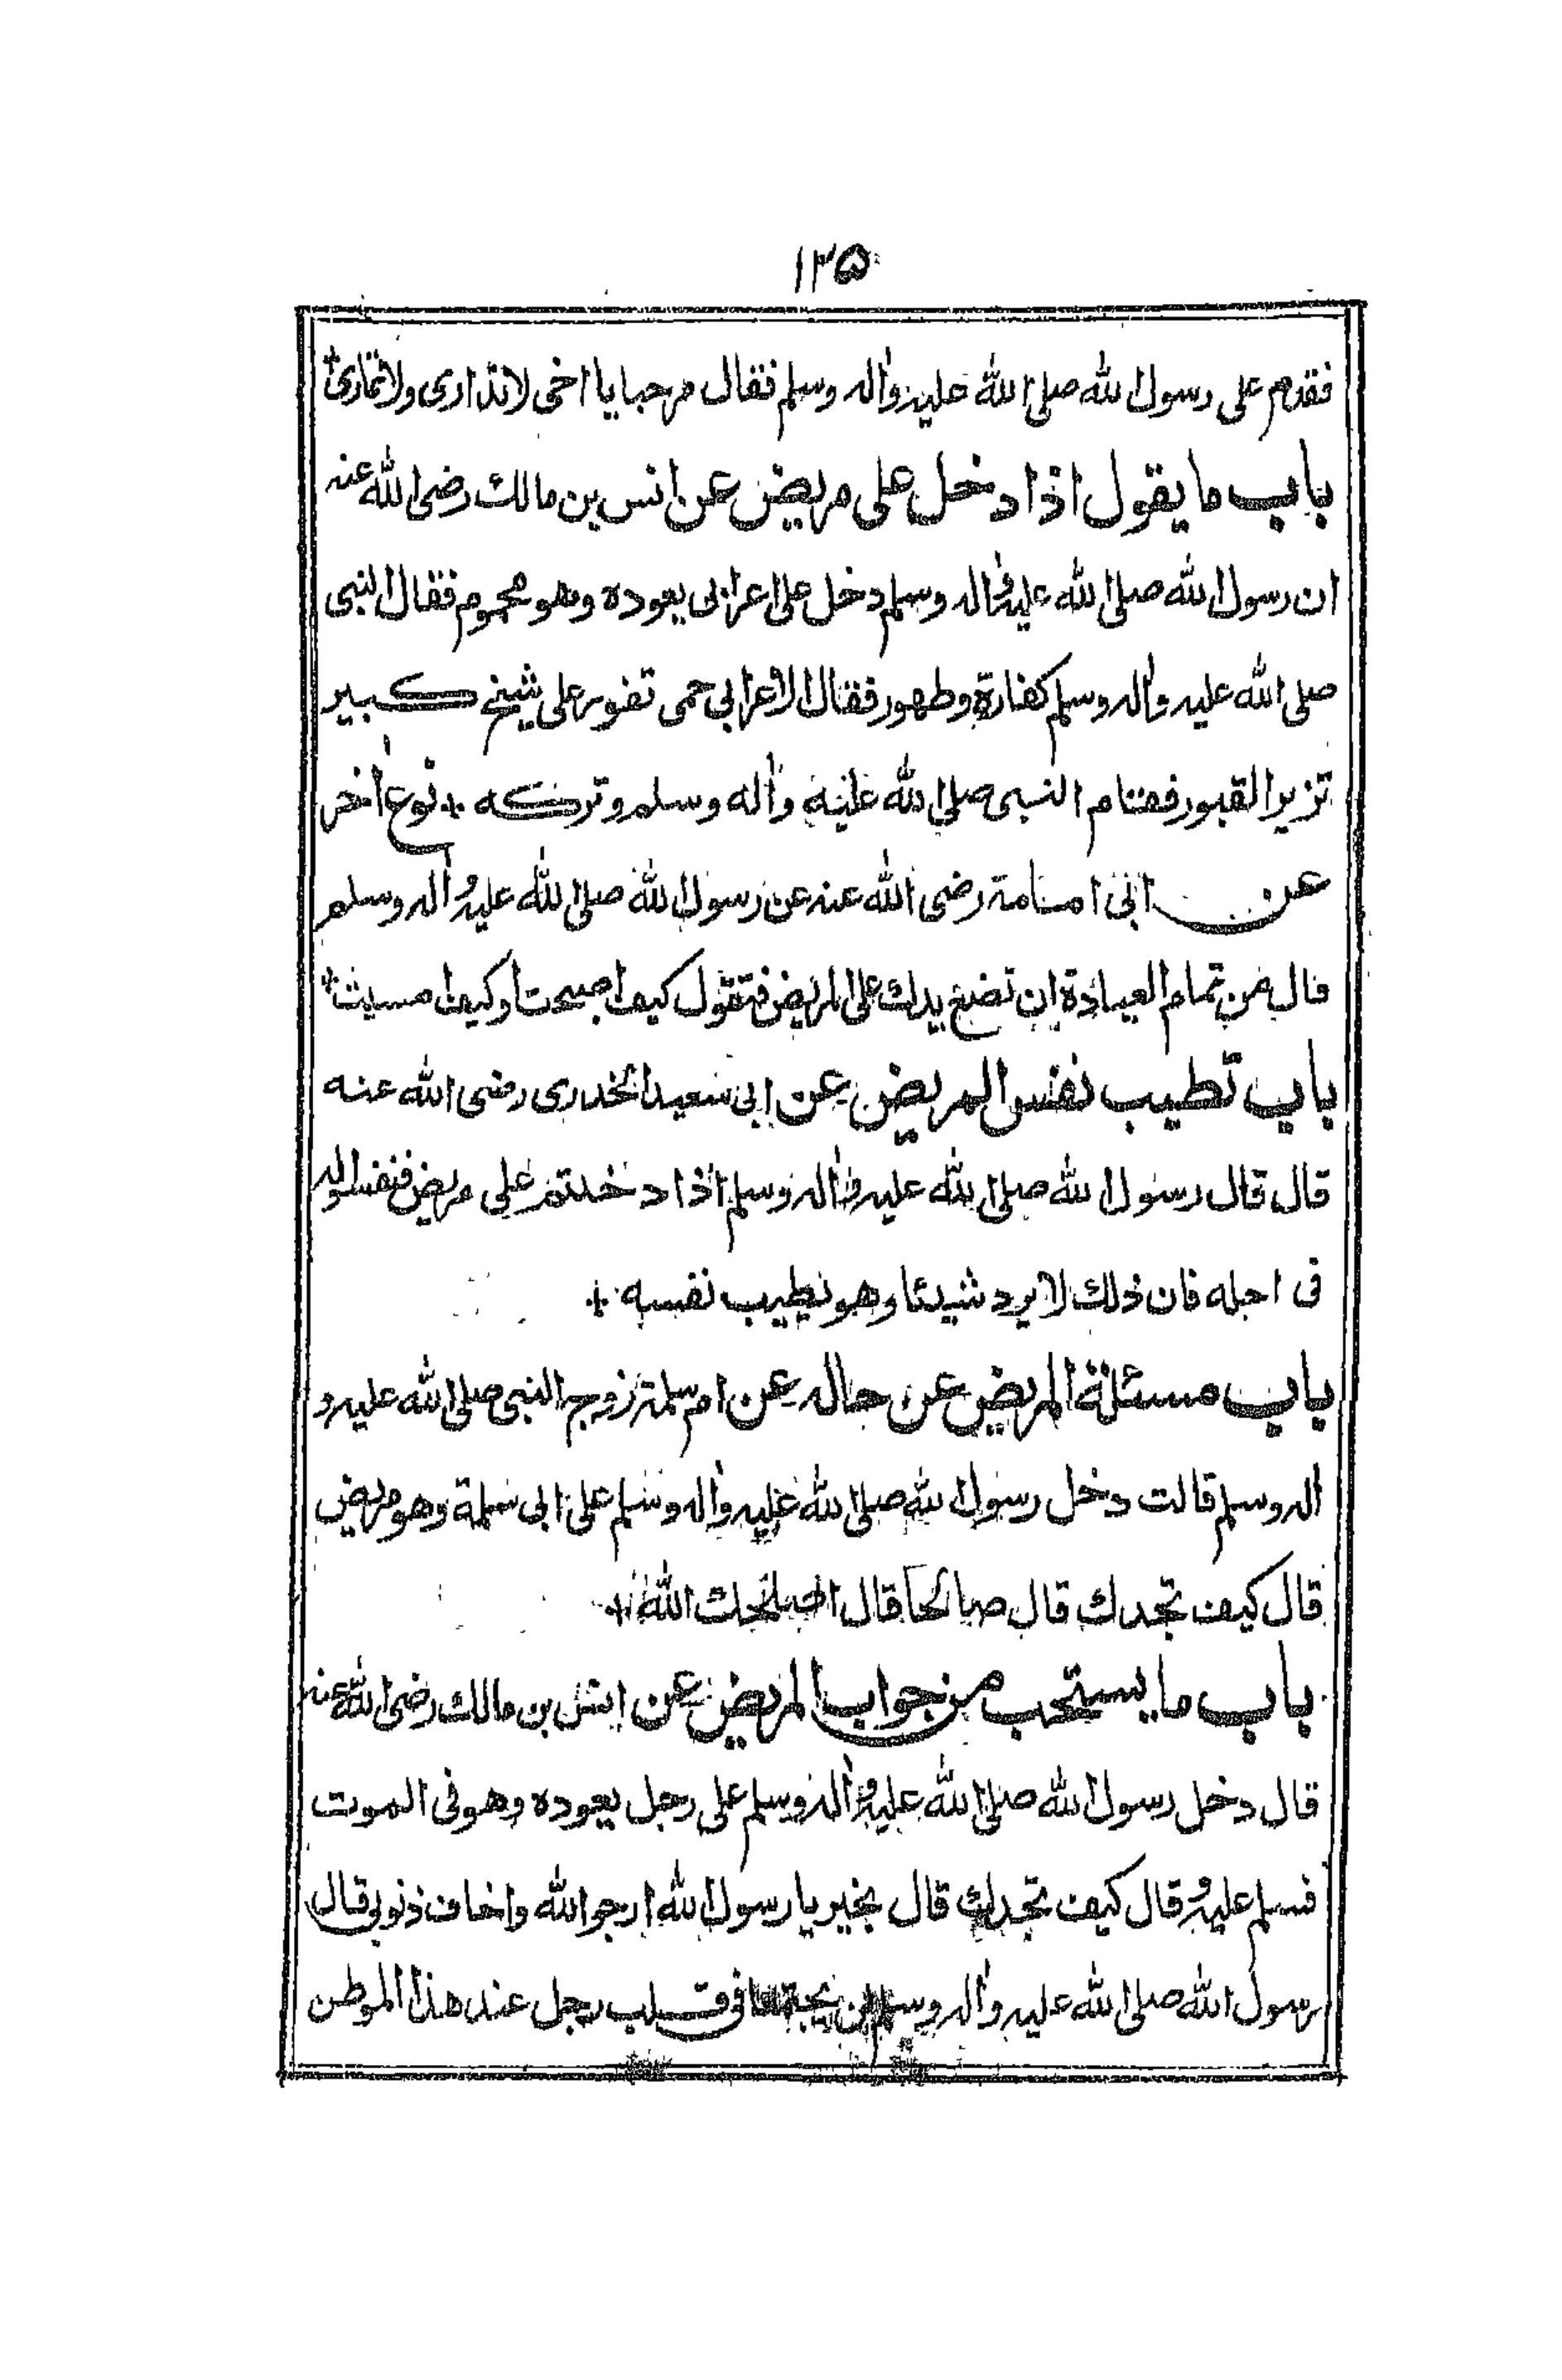 ١٣۵
فقدم على رسول الله صلى الله عليه واله وسلم فقال مرحبا يا اخى لا تدارى ولا تمارى +
باب ما يقول اذا دخل على مريض عن انس بن مالك رضى الله عنه
ان رسول الله صلى الله عليه واله وسلم دخل على اعرابى يعوده وهو محموم فقال النبى
صلى الله عليه واله وسلم كفارة وطهور فقال الاعرابى حمى تفور على شيخ كبير
تزير القبور فقام النبى صلى الله عليه واله وسلم وتركه + نوع اخر
عن ابى امامة رضى الله عنه عن رسول الله صلى الله عليه واله وسلم
قال من تمام العيادة ان تضع يدك على المريض فتقول كيف اصبحت او كيف امسيت +
باب تطيب نفس المريض عن ابى سعيد الخدرى رضى الله عنه
قال قال رسول الله صلى الله عليه واله وسلم اذا دخلتم على مريض فنفسوا له
فى اجله فان ذلك لا يرد شيئا وهو يطيب نفسه +
باب مسئلة المريض عن حاله عن ام سلمة زوج النبى صلى الله عليه و
اله وسلم قالت دخل رسول الله صلى الله عليه واله وسلم على ابى سلمة وهو مريض
قال كيف تجدك قال صالحا قال اصلحك الله +
باب ما يستحب من جواب المريض عن انس بن مالك رضى الله عنه
قال دخل رسول الله صلى الله عليه واله وسلم على رجل يعوده وهو فى الموت
فسلم عليه وقال كيف تجدك قال بخير يا رسول الله ارجو الله واخاف ذنوبى قال
رسول الله صلى الله عليه واله وسلم لن يجتمعا فى قلب رجل عند هذا الموطن